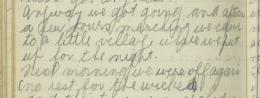 Anyway we got going and after
a few hours marching we came
to a little village where we put
up for the night.
Next morning we were off again
(no rest for the wicked)